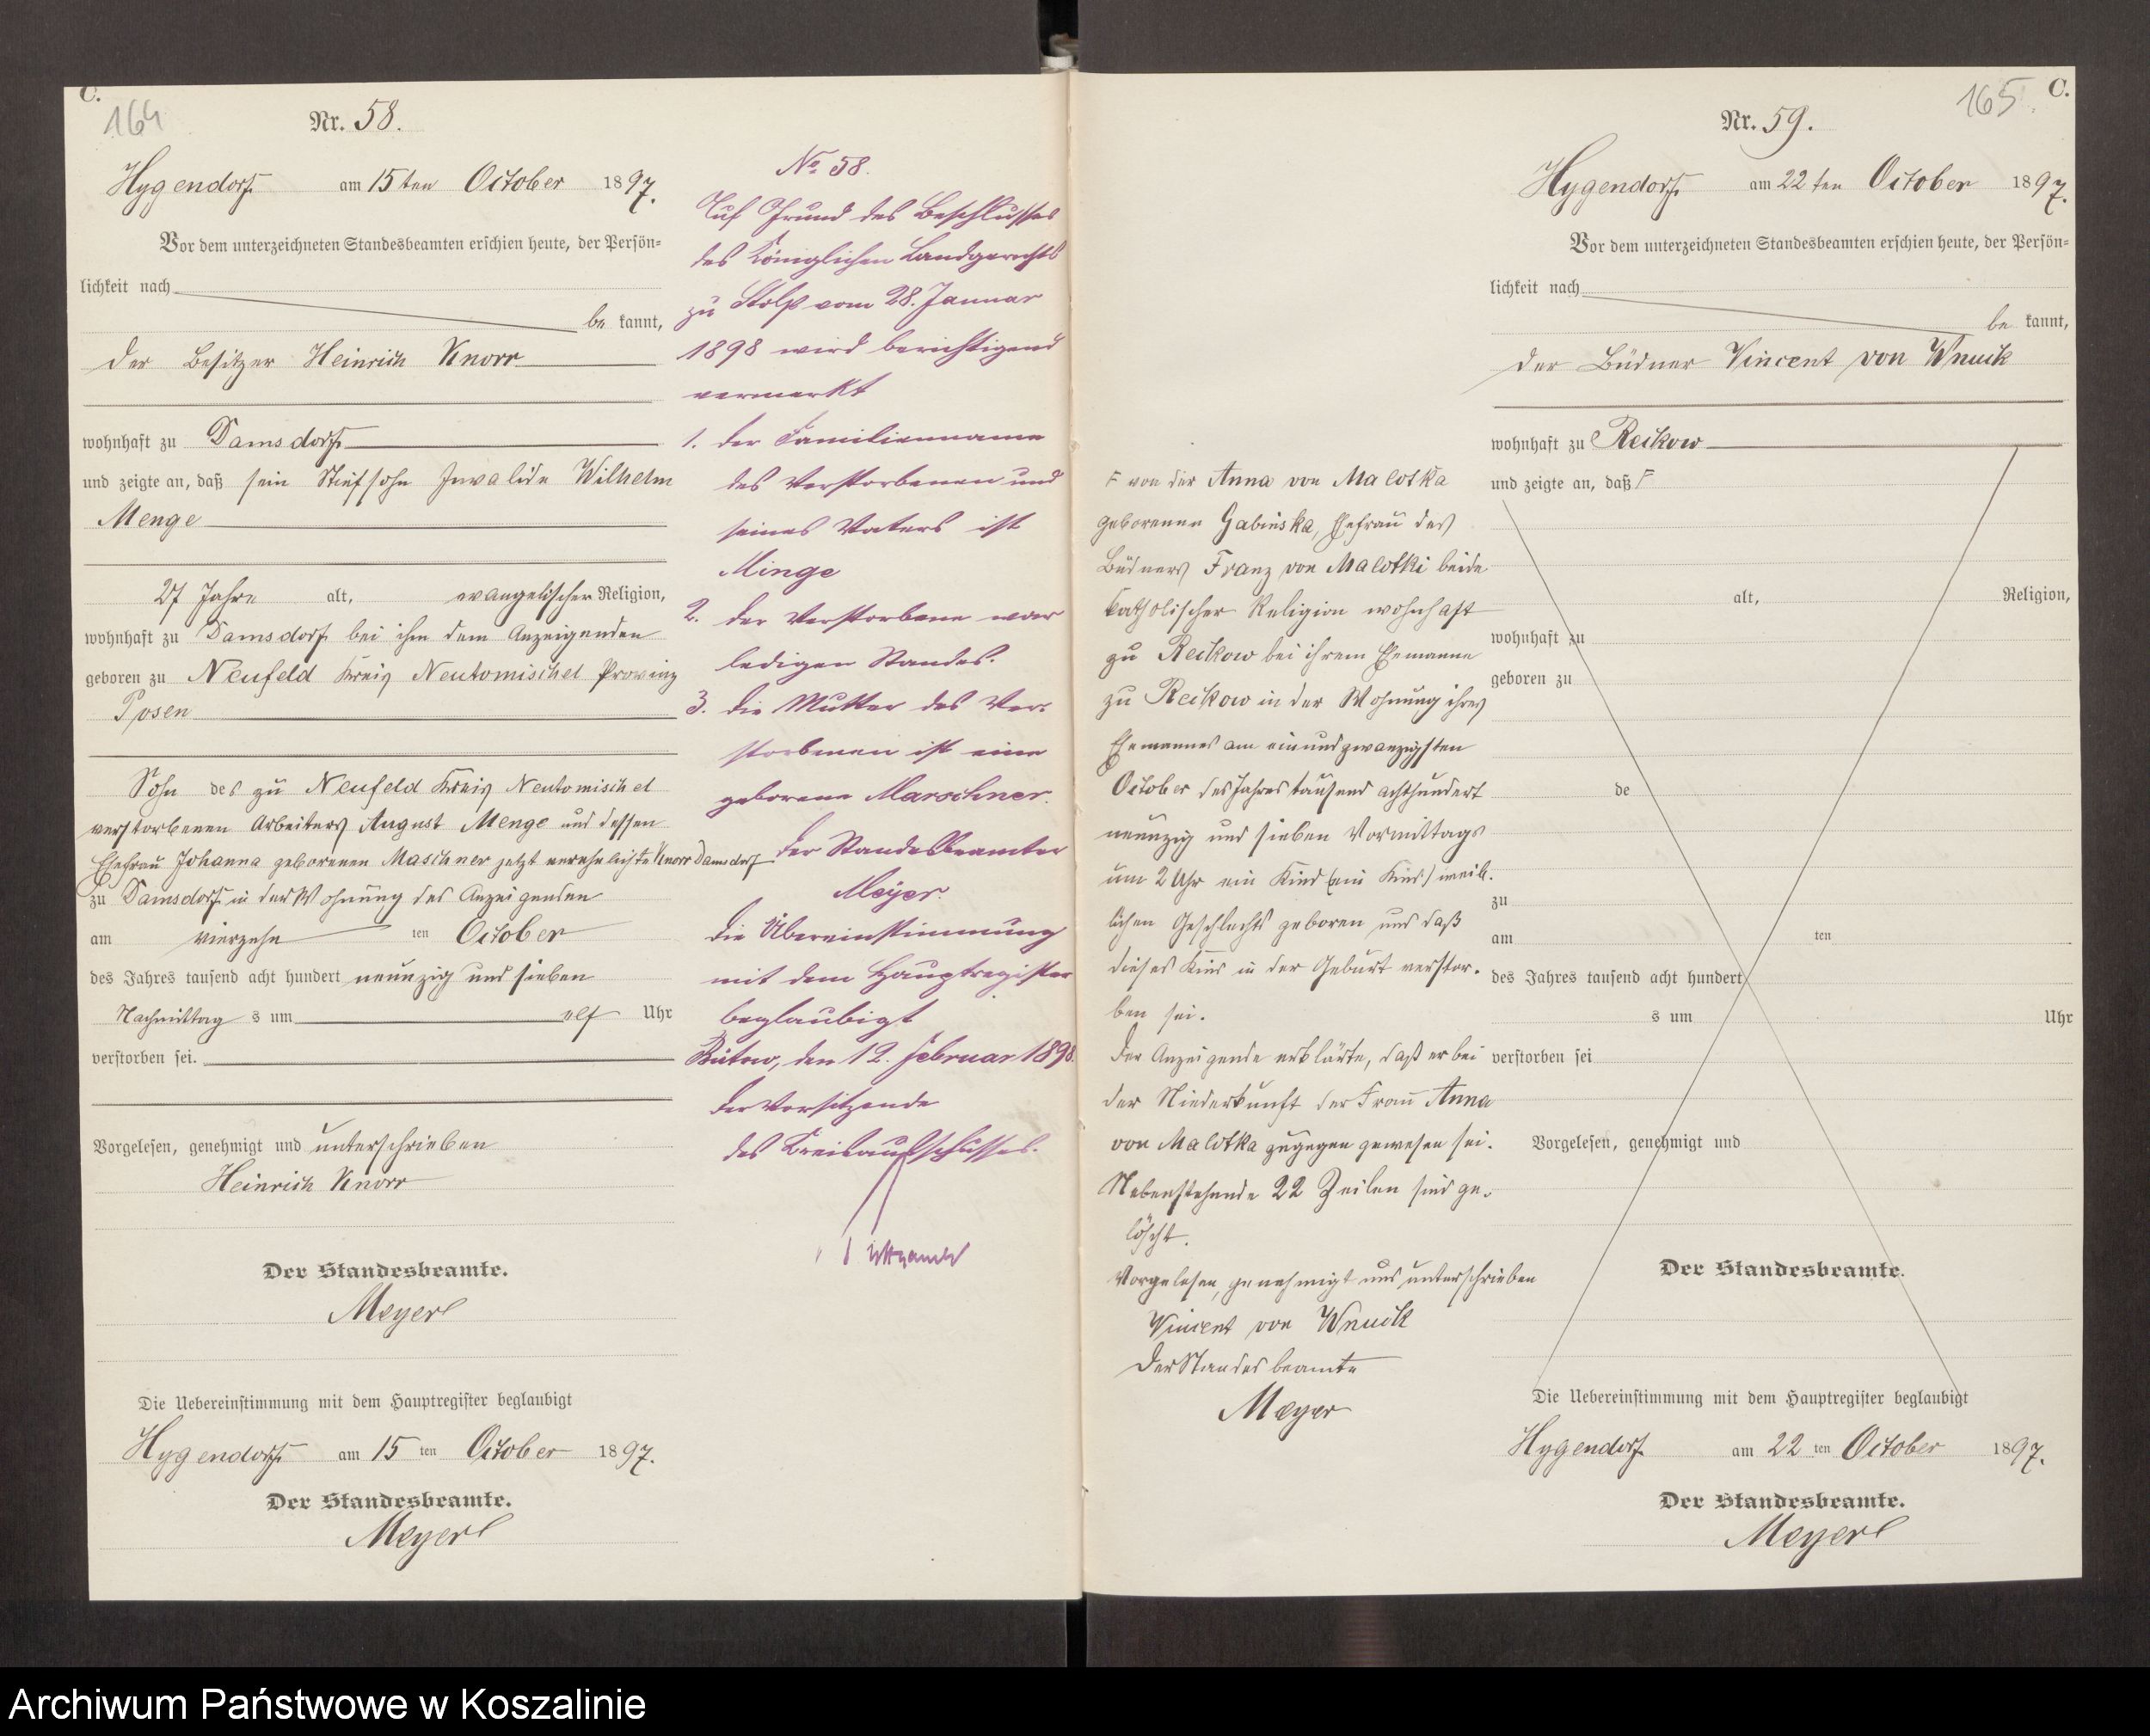 C.
164
Nr. 58.
Hygendorf am 15ten October 1897.
Vor dem unterzeichneten Standesbeamten erschien heute, der Persön=
lichkeit nach
be kannt,
der Besitzer Heinrich Knorr
wohnhaft zu Damsdorf
und zeigte an, daß sein Stiefsohn Invalide Wilhelm
Menge
27 Jahre alt, evangelischer Religion,
wohnhaft zu Damsdorf bei ihm dem Anzeigenden
geboren zu Neufeld Kreis Neutomischel Provinz
Posen
Sohn des zu Neufeld Kreis Neutomischel
verstorbenen Arbeiters August Menge und dessen
Ehefrau Johanna geborenen Maschner jetzt verehelichte Knorr Damsdorf
zu Damsdorf in der Wohnung des Anzeigenden
am vierzehn ten October
des Jahres tausend acht hundert neunzig und sieben
Nachmittag s um elf Uhr
verstorben sei.
Vorgelesen, genehmigt und unterschrieben
Heinrich Knorr
Der Standesbeamte.
Meyer
Die Uebereinstimmung mit dem Hauptregister beglaubigt
Hygendorf am 15 ten October 1897.
Der Standesbeamte.
Meyer
No 58.
Auf Grund des Beschlusses
des Königlichen Landgerichts
zu Stolp vom 28. Januar
1898 wird berichtigend
vermerkt
1. der Familienname
des Verstorbenen und
seines Vaters ist
Minge
2. der Verstorbene war
ledigen Standes.
3. die Mutter des Ver-
storbenen ist eine
geborene Marschner.
Der Standesbeamter
Meyer.
Die Übereinstimmung
mit dem Hauptregister
beglaubigt
Bütow, den 12. Februar 1898.
Der Vorsitzende
des Kreisausschusses.
165
C.
Nr. 59.
Hygendorf am 22 ten October 1897.
Vor dem unterzeichneten Standesbeamten erschien heute, der Persön=
lichkeit nach
be kannt,
der Büdner Vincent von Wnuck
wohnhaft zu Reckow
und zeigte an, daß F
alt, Religion,
wohnhaft zu
geboren zu
de
zu
am ten
des Jahres tausend acht hundert
s um Uhr
verstorben sei
Vorgelesen, genehmigt und
Der Standesbeamte.
Die Uebereinstimmung mit dem Hauptregister beglaubigt
Hygendorf am 22 ten October 1897.
Der Standesbeamte.
Meyer
F von der Anna von Malotka
geborenen Gabinska, Ehefrau des
Büdners Franz von Malotki beide
katholischer Religion wohnhaft
zu Reckow bei ihrem Ehemanne
zu Reckow in der Wohnung ihres
Ehemannes am einundzwanzigsten
October des Jahres tausend achthundert
neunzig und sieben Vormittags
um 2 Uhr ein Kind (ein Kind) weib-
lichen Geschlechts geboren und daß
dieses Kind in der Geburt verstor-
ben sei.
Der Anzeigende erklärte, daß er bei
der Niederkunft der Frau Anna
von Malotka zugegen gewesen sei.
Nebenstehende 22 Zeilen sind ge-
löscht.
Vorgelesen, genehmigt und unterschrieben
Vincent von Wnuck
Der Standesbeamte
Meyer
Archiwum Państwowe w Koszalinie